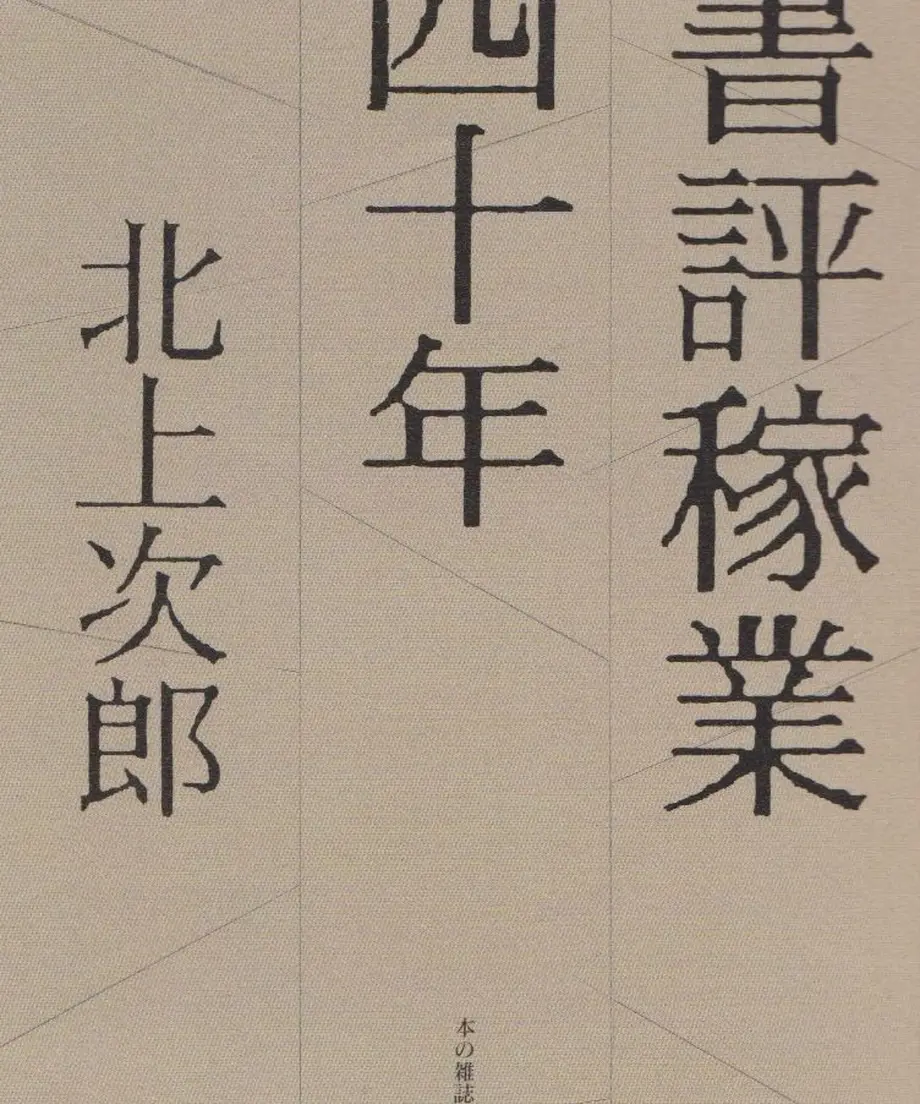 書評稼業
四十年
北上次郎
本の雑誌